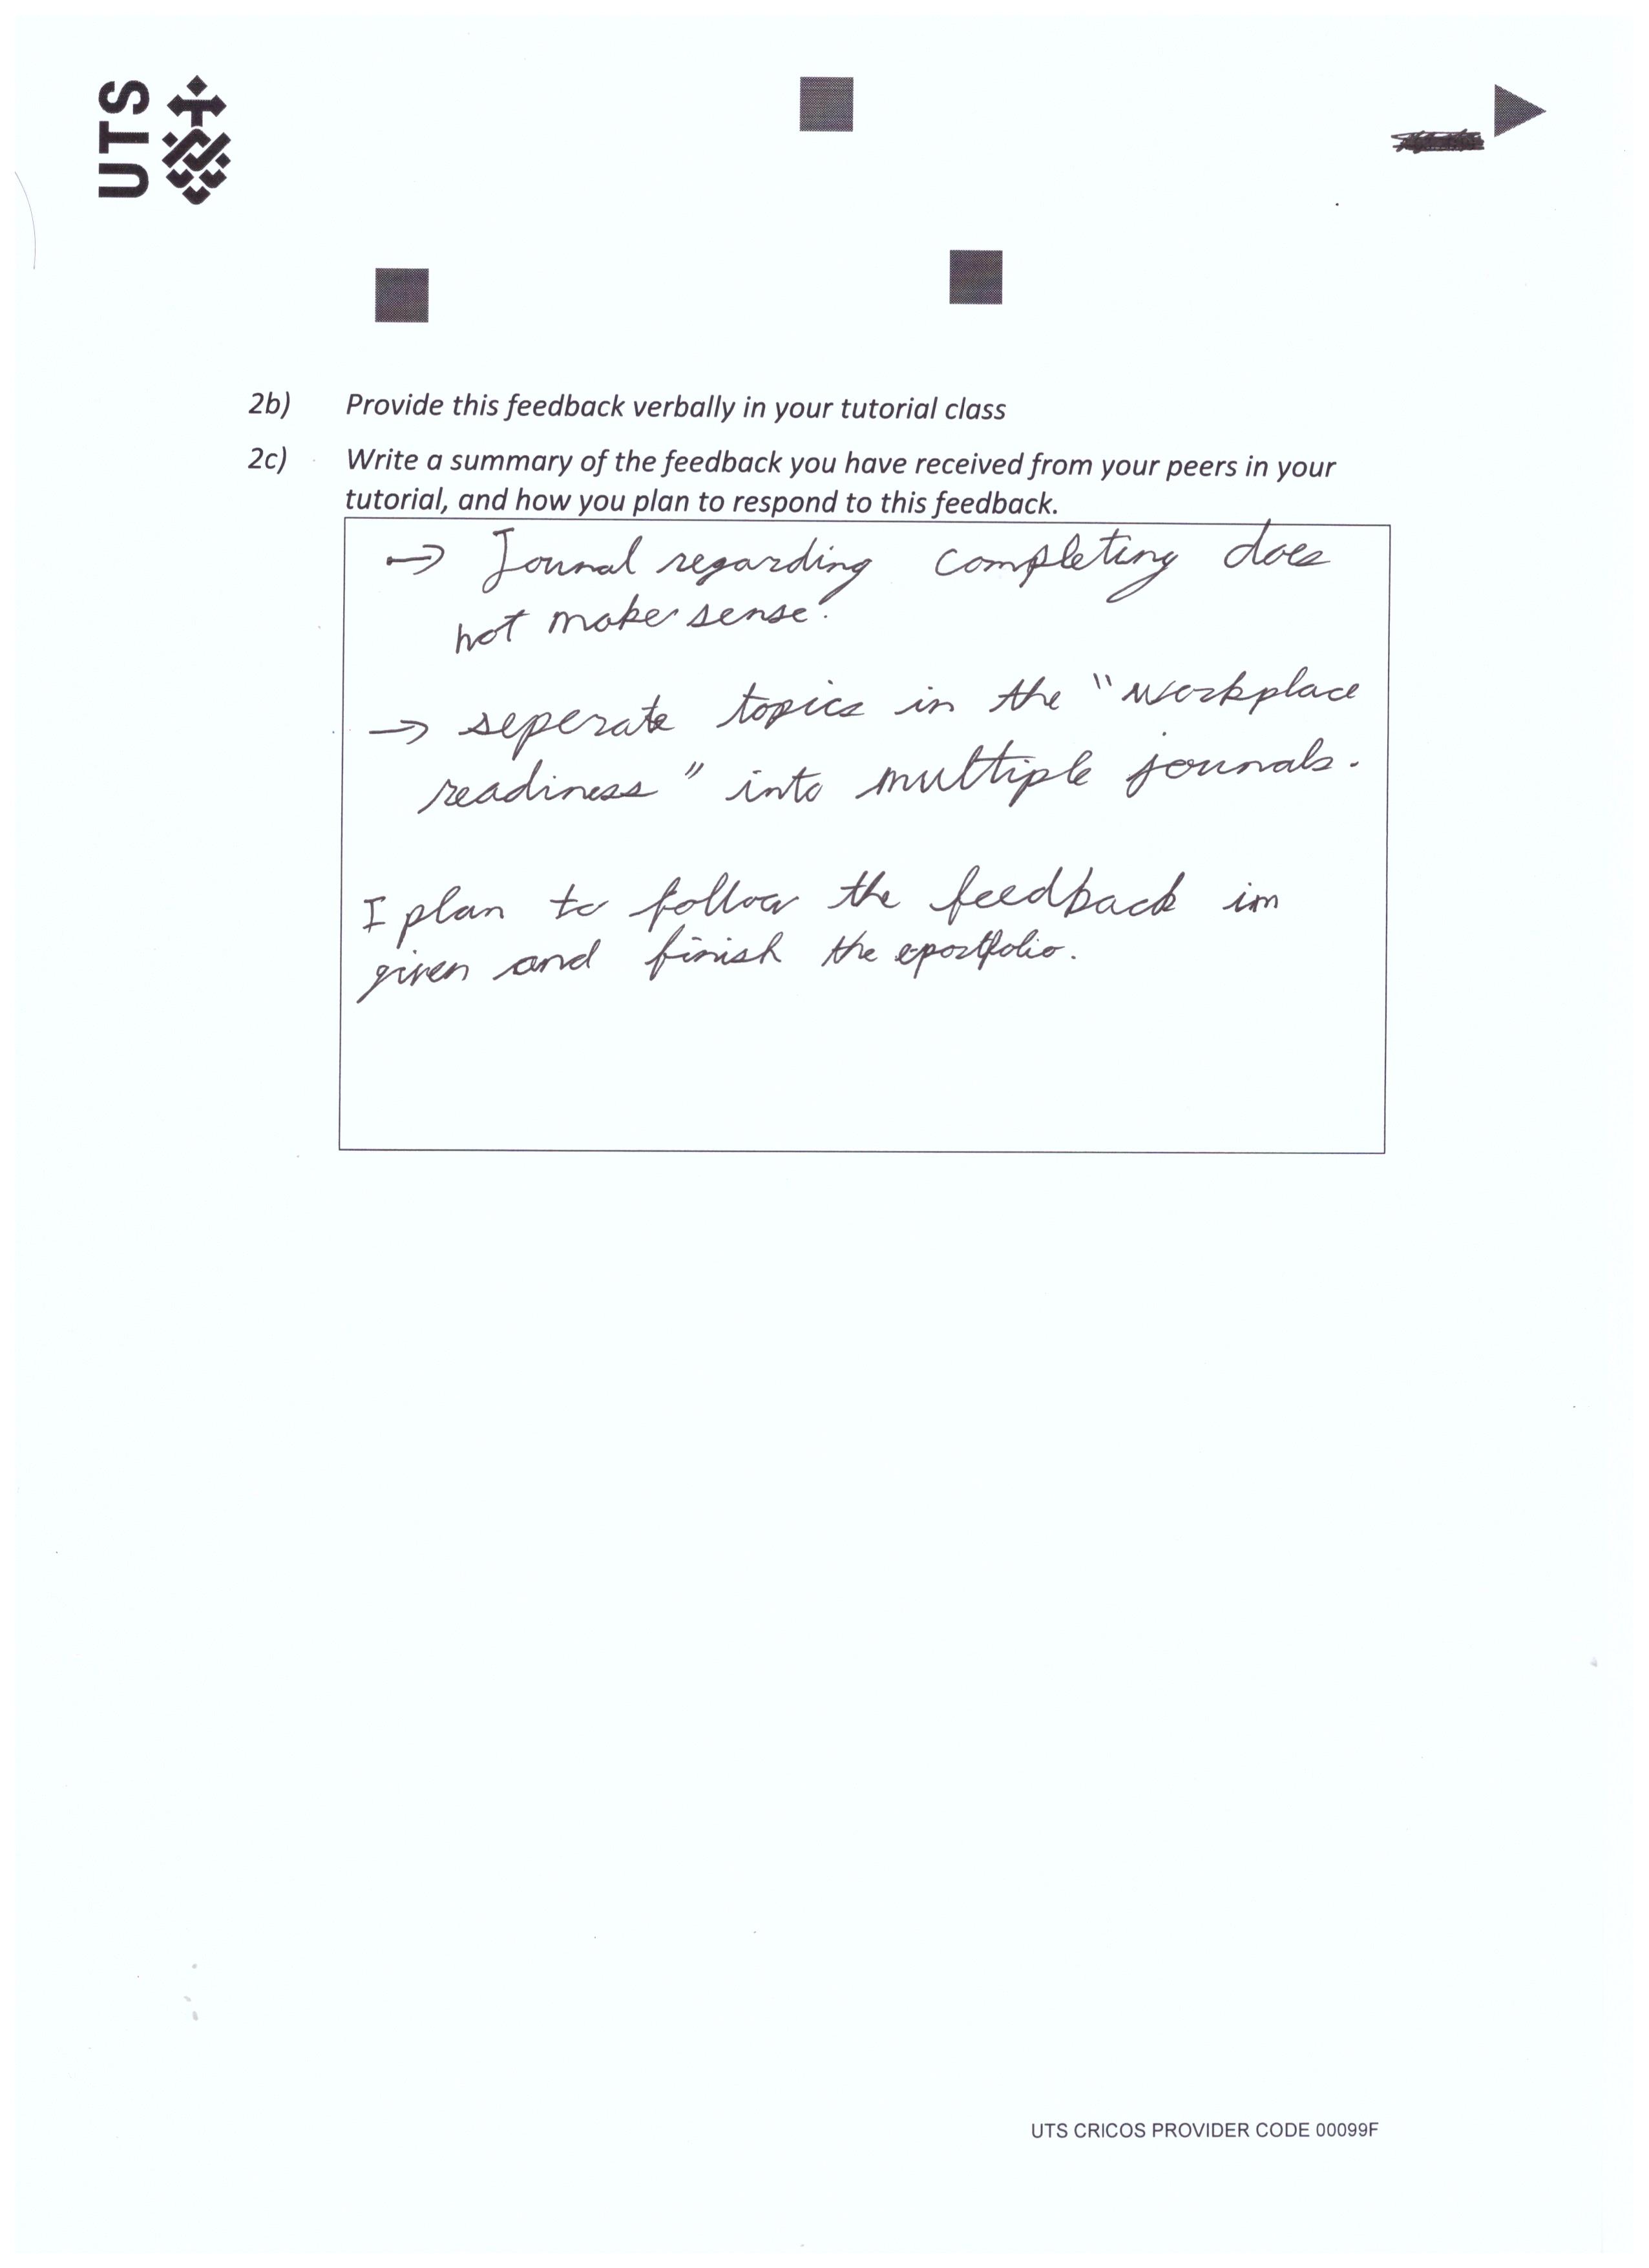 UTS
2b) Provide this feedback verbally in your tutorial class
2c) Write a summary of the feedback you have received from your peers in your
tutorial, and how you plan to respond to this feedback.
→ Jounal regarding completing does
not make sense.
→ seperate topics in the "workplace
readiness" into multiple jounals.
I plan to follow the feedback im
given and finish the eportfolio.
UTS CRICOS PROVIDER CODE 00099F